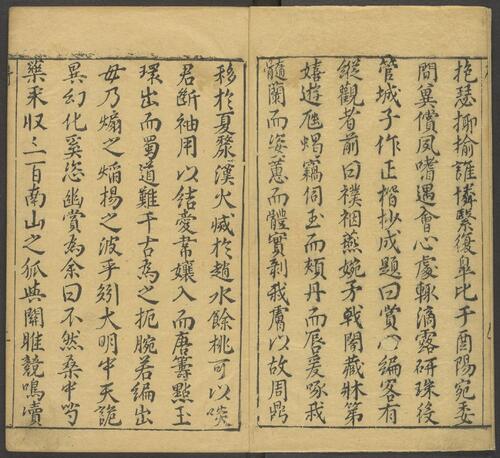 抱瑟揶揄誰憐繄復皐比于酉陽宛委
間冀償夙嗜遇會心處輙滴露研珠後
管城子作正楷抄成題曰賞心編客有
縱觀者前曰襆裀燕婉矛戟閨藏牀第
嬉遊虺蝎竊伺玉而頰丹而唇爰啄我
髓蘭而姿蕙而體實剝我膚以故周鼎
移於夏漦漢火烕於趙水餘桃可以啖
君斷袖用以結愛帬孃入而唐籌點玉
環出而蜀道難千古為之扼腕若編出
毋乃煽之焰揚之波乎矧大明中天詭
異幻化奚恣幽賞為余曰不然桑中芍
藥采収三百南山之狐與關雎競鳴瀆